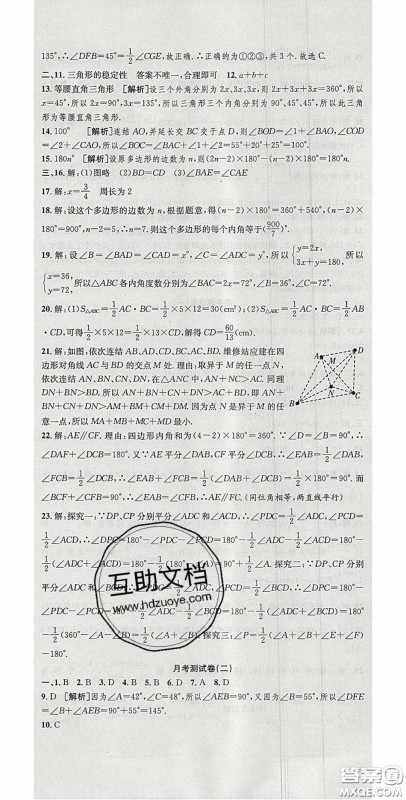 135°,∴∠DFB=45°=1/2∠CGE,故正确.∴正确的为①②③,共3个.故选C.
二、11.三角形的稳定性 答案不唯一,合理即可 12.a+b+c
13.等腰直角三角形 [解析]设三个外角分别为2x,3x,3x,则2x+3x+3x=360°,所以x=45°,所以2x=90°,3x=135°,所以三角形三个内角分别为90°,45°,45°,所以此三角形为等腰直角三角形.
14.100° [解析]连结AO,并延长交BC交于点D,则∠BOD=∠1+∠BAO,∠COD=∠2+∠CAO,所以∠BOC=∠BAC+∠1+∠2=55°+20°+25°=100°.
15.180n° [解析]设原多边形的边数为n,则(2n-2)×180°-(n-2)×180°=180°n.
三、16.解:(1)图略 (2)BD=CD (3)∠BAE=∠CAE
17.解:x=3/4 周长为2
18.解:设这个多边形的边数为n,根据题意,得(n-2)×180°=360°+540°,(n-2)×180°=900°,n-2=5,∴n=7.∴这个多边形的每个内角等于(900/7)°.
19.解:设∠B=∠BAD=∠CAD=x°,∠C=∠ADC=y°,所以{y=2x, 3x+y=180,所以
{x=36, y=72.所以△ABC各内角度数分别为∠BAC=72°,∠B=36°,∠C=72°.
20.解:(1)S△ABC=1/2AC·BC=1/2×5×12=30(cm²);(2)S△ABC=1/2AC·BC=1/2AB
·CD,可得1/2×5×12=1/2×13×CD,解得CD=60/13(cm).
21.解:如图,依次连结AB,AD,CD,BC,AC,BD.维修站应建在四边形对角线AC与BD的交点M处.理由:取异于M的任一点N,依次连结AN,BN,CN,DN,在△ACN中,AN+CN>AC.同理DN+BN>BD.所以AN+BN+CN+DN>AC+BD.即AN+BN+CN+DN>AM+BM+CM+DM.因为点N是异于M的任意一点,所以MA+MB+MC+MD最小.
A D M N B C
22.解:AE∥CF.理由:四边形内角和为(4-2)×180°=360°.∵∠B=∠D=90°,∴∠DAF+∠DCF=180°.又∵AE平分∠DAB,CF平分∠DCB,∴∠DAE=∠EAF=1/2∠DAF,∠DCF=∠FCB=1/2∠DCB,∴∠EAF+∠FCB=1/2(∠DAB+∠DCB)=90°.而∠BCF+∠CFB=90°,∴∠CFB=∠EAF,∴AE∥CF.(同位角相等,两直线平行)
23.解:探究一:∵DP,CP分别平分∠ADC和∠ACD,∴∠PDC=1/2∠ADC,∠PCD=1/2∠ACD,∴∠DPC=180°-∠PDC-∠PCD=180°-1/2∠ADC-1/2∠ACD=180°-1/2(∠ADC+∠ACD)=180°-1/2(180°-∠A)=90°+1/2∠A.探究二:∵DP,CP分别平分∠ADC和∠BCD,∴∠PDC=1/2∠ADC,∠PCD=1/2∠BCD,∴∠DPC=180°-∠PDC-∠PCD=180°-1/2∠ADC-1/2∠BCD=180°-1/2(∠ADC+∠BCD)=180°-1/2(360°-∠A-∠B)=1/2(∠A+∠B).探究三:∠P=1/2(∠A+∠B+∠E+∠F)-180°.
月考测试卷(二)
一、1.B 2.B 3.B 4.D 5.A 6.D 7.A 8.D
9.D [解析]因为∠A=42°,∠C=48°,所以∠AEB=90°.又因为∠B=55°,所以∠DFE=∠B+∠AEB=90°+55°=145°.
10.C
互助文档
www.hdzuoye.com
答案圈
MXQE.COM